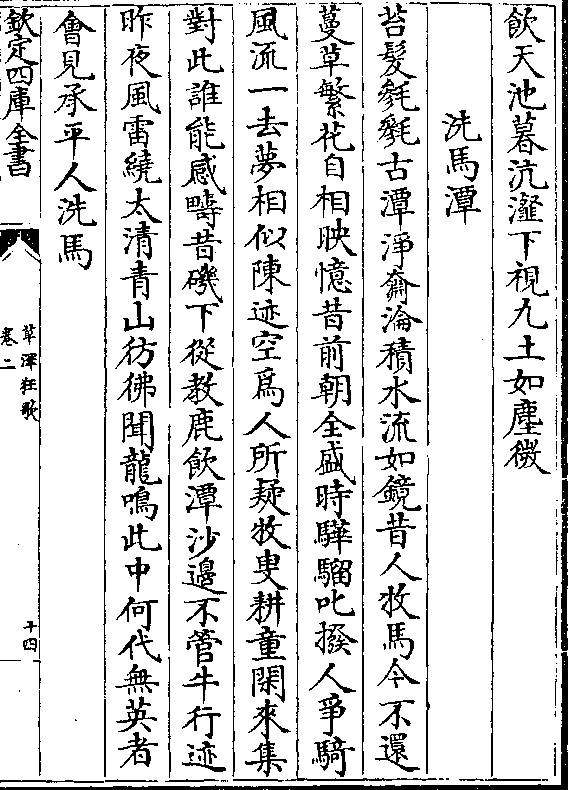 飲天池暮沆瀣下視九土如塵微
洗馬潭
苔髮毿毿古潭淨奫淪積水流如鏡昔人牧馬今不還
蔓草繁花自相映憶昔前朝全盛時驊騮叱撥人爭騎
風流一去夢相似陳迹空爲人所疑牧叟耕童閑來集
對此誰能感疇昔磯下從教鹿飲潭沙邊不管牛行迹
昨夜風雷繞太清青山彷彿聞龍鳴此中何代無英者
會見承平人洗馬
欽定四庫全書
草澤狂歌
卷二
十四